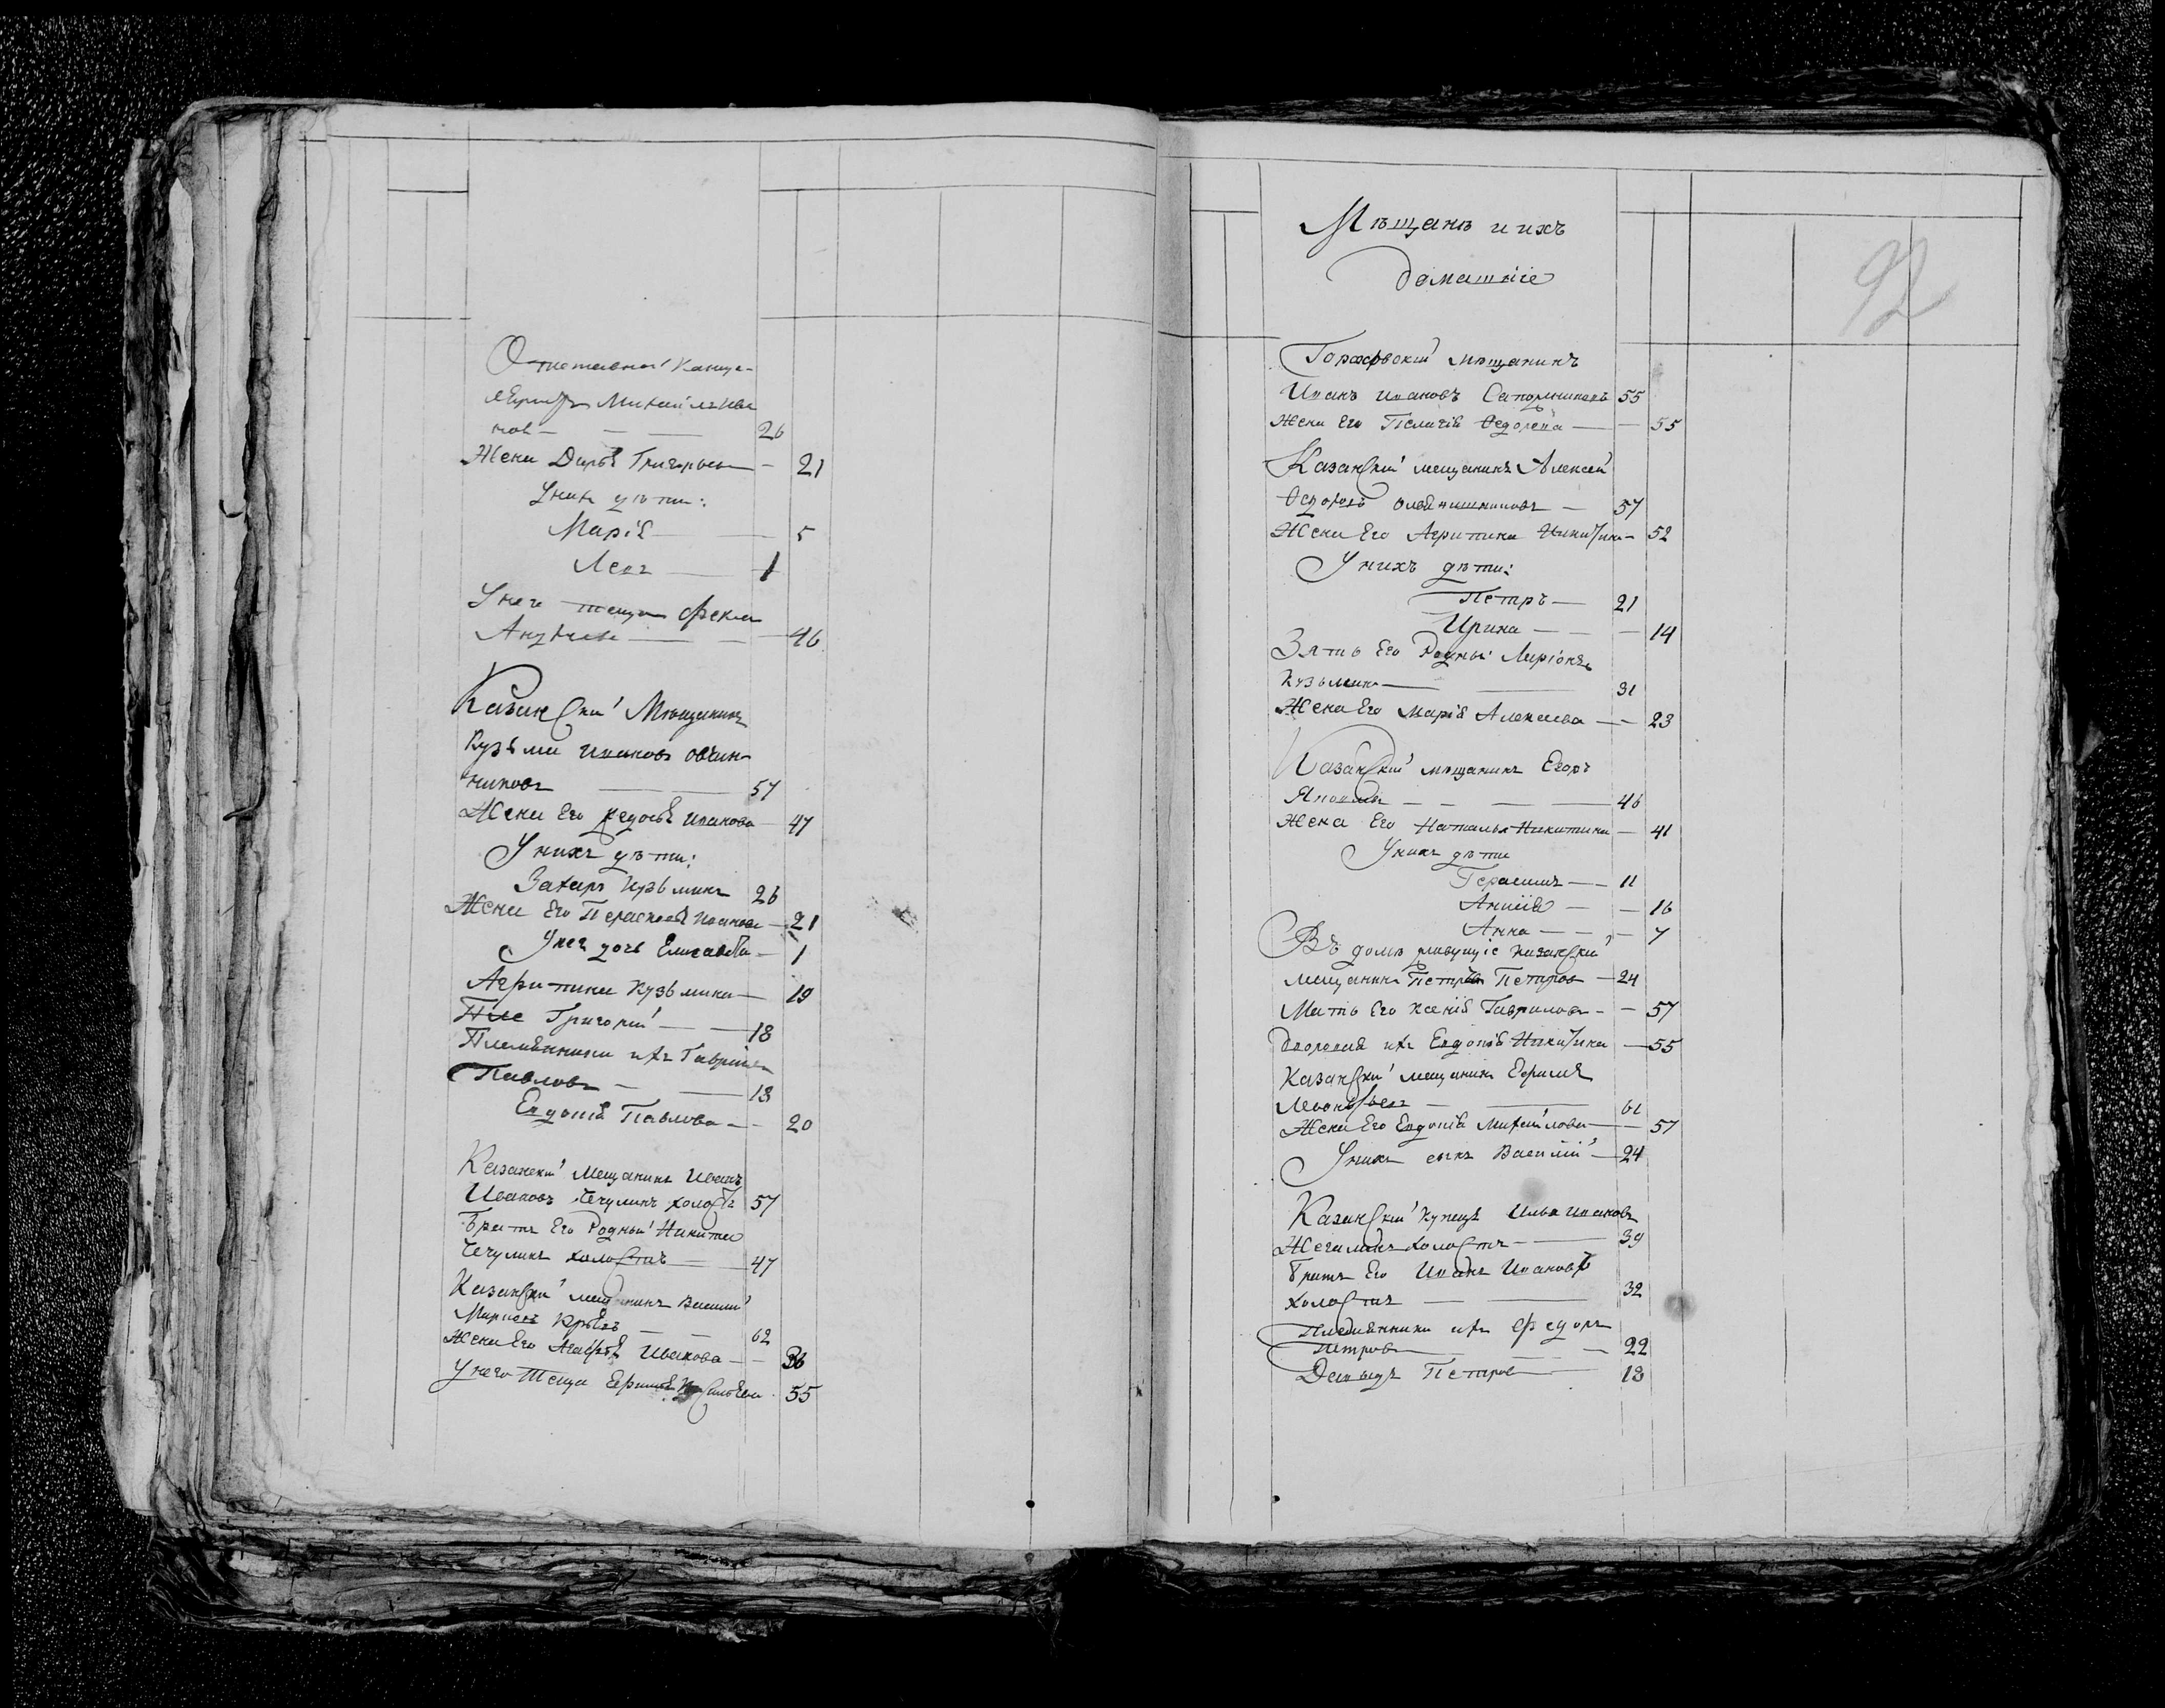 Отставной Канце-
ляристъ Михайла Ива
нов — 26
Жена Дарья Григорьева — 21
У них дѣти:
Марія — 5
Левъ — 1
У него теща Фекла
Андреева — 46
Казанской Мѣщанинъ
Кузьма Ивановъ Овчин
никовъ — 57
Жена Его Федосья Иванова — 47
У нихъ дѣти:
Захаръ Кузьминъ 26
Жена Его Парасковья Иванова — 21
У нег дочь Елисавета — 1
Агрипина Кузьмина — 19
Григорий — 18
Племянники ихъ Гаврила
Павловъ — 13
Евдокия Павлова — 20
Казанский Мещанинъ Иванъ
Ивановъ Чечулинъ холостъ 57
Братъ Его Родный Никита
Чечулинъ холостъ — 47
Казанский мещанинъ Василий
62
Жена Его Агафья Ивакова — 36
У него Теща 55
Мѣщанъ и ихъ
домашніе
92
мѣщанинъ
Иванъ Ивановъ Сапожниковъ 55
Жена Его Пелагія Ѳедорова — 55
Казанский мещанинъ Алексей
Ѳедоровъ 57
Жена Его Агрипина Никитина — 52
У нихъ дѣти:
Петръ — 21
Ирина — 14
Зять Его Родный Ларіонъ
Кузьминъ — 31
Жена Его Марія Алексеева — 23
Казанский мѣщанинъ Егоръ
Яковлевъ — 46
Жена Его Наталья Никитина — 41
У нихъ дѣти
Герасимъ — 11
— 16
Анна — 7
Въ доме живущіе Казанский
мещанинъ Петръ Петров — 24
Мать Его Ксенія Гаврилова — 57
ихъ Евдокія Никитина — 55
Казанский мещанинъ Ефимъ
Леонтьевъ — 61
Жена Его Евдокія Михайлова — 57
У нихъ сынъ Василий — 24
Казанский Купецъ Илья Ивановъ
Жегалинъ холостъ — 39
Братъ Его Иванъ Ивановъ
холостъ — 32
Племянники ихъ Федоръ
Петров — 22
Давыдъ Петров — 13